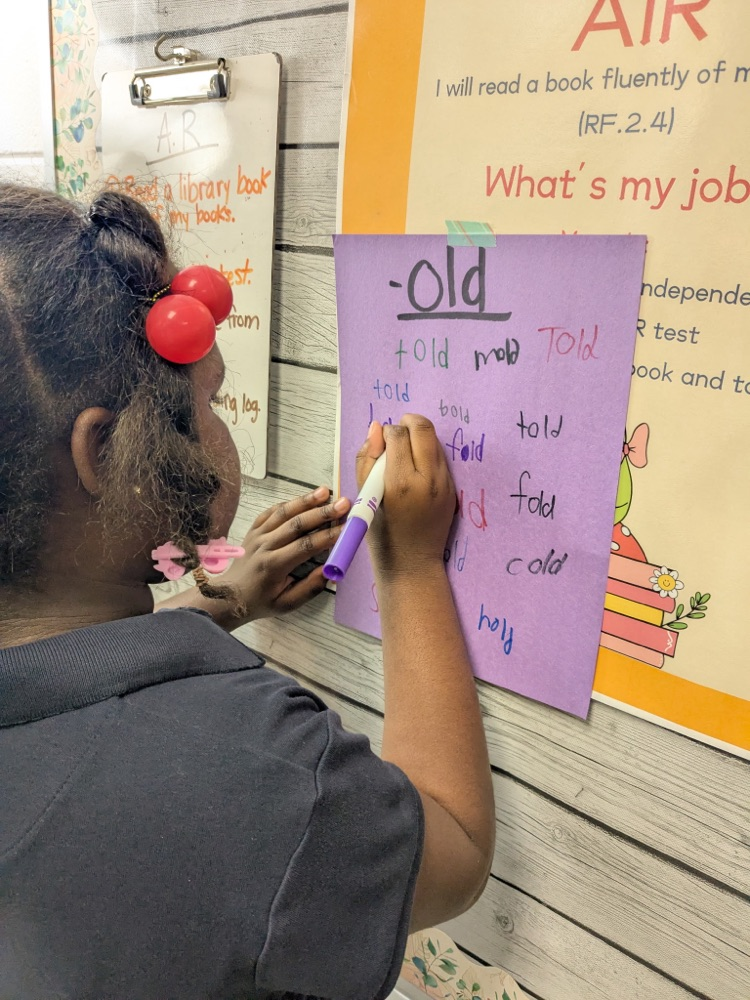 A.R
Read a library book
my books.
test.
from
log.
AIR
I will read a book fluently of m
(RF.2.4)
What's my job
ndepende
R test
ook and to
-old
told mold Told
told
bold told
fold
fold
old cold
hold